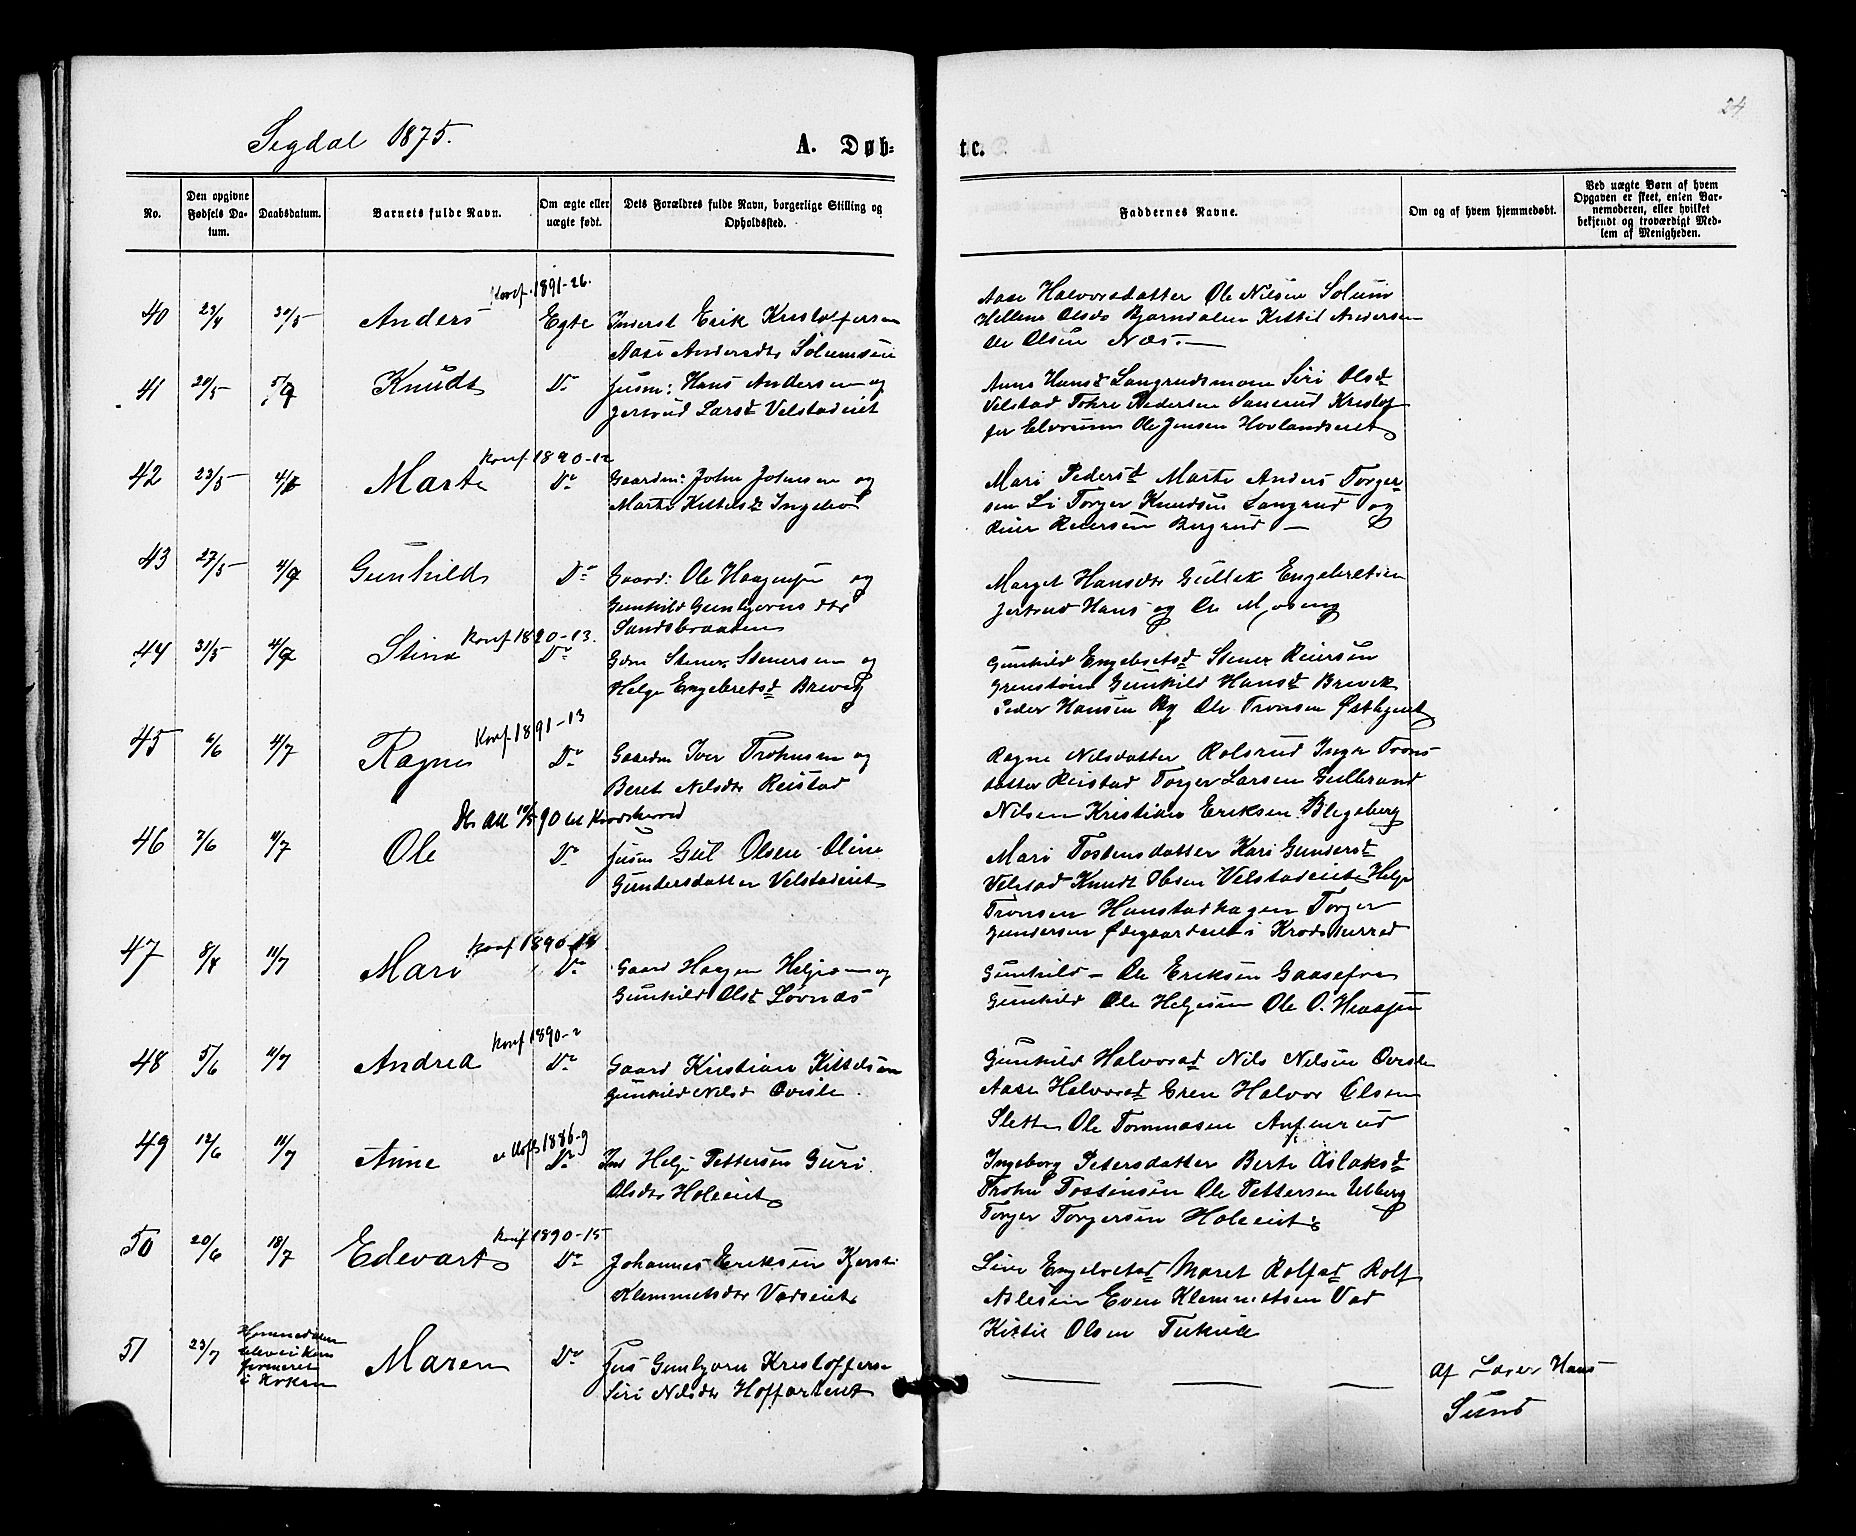 24
Segdal 1875.
A. Døb-
te.
No.
Den opgivne Fødsels Da-tum.
Daabsdatum.
Barnets fulde Navn.
Om ægte eller uægte født.
Dets Forældres fulde Navn, borgerlige Stilling og Opholdssted.
Faddernes Navne.
Om og af hvem hjemmedøbt.
Ved uægte Børn af hvem Opgaven er skeet, enten Bar-nemoderen, eller hvilket bekjendt og troværdigt Med-lem af Menigheden.
Konf. 1891-26.
40 23/4 30/5 Anders Egte Inderst Erik Kristoffersen
Aase Andersdtr Solumseie
Aase Halvorsdatter Ole Nilsen Solum
Hellene Olsdr Bjørndalen Kittil Andersen
Ole Olsen Næs.
41 20/5 Knudt Do Husm: Hans Andersen og
Jertrud Larsd Velstadeiet
Anne Hansd Langrudsmoen Siri Olsd
Velstad Tohre Pedersen Kristof
fer Elvrum Ole Jensen Hovlandseiet
Konf. 1890-12
42 23/5 Marte Do Gaardm: John Johnsen og
Marte Kittelsd
Mari Pedersd Marte Anders Torger
sen Li Torger Knudsen Langrud og
Reier Reiersen Bergrud
43 27/5 Gunhild Do Gaard: Ole Haagensen og
Gunhild Gunbjørns dtr
Sandsbraaten
Marget Hansdtr Gullek Engebretsen
Jertrud Hans og Ole Moseng
Konf 1890-13.
44 31/5 Stine Do Gdm Stener Stenersen og
Helge Engebretsd Brevig
Gunhild Engebretsd Stener Reiersen
Grensten Gunhild Hansd Brevik
Peder Hansen By Ole Tronsen
Konf. 1891-13
45 6/6 11/7 Ragne Do Gaardm Iver Trohnsen og
Beret Nilsdtr Reistad
Ragne Nilsdatter Rolsrud Inger Trons
datter Reistad Torger Larsen Gulbrand
Nilsen Kristian Eriksen Blegeberg
46 7/6 11/7 Ole Do Husm Gul Olsen Oline
Gundersdatter Velstadeiet
Mari Tostensdatter Kari Gundersd
Velstad Knudt Ibsen Velstadeiet Helge
Tronsen Haustadhagen Torger
Gundersen Ødegaardene i Krødsherred
Konf 1890-14
47 11/7 Mari Do Gaard Haagen Helgesen og
Gunhild Olsd Løvnæs
Gunhild – Ole Eriksen
Gunhild Ole Helgesen Ole O.
Konf 1890-2
48 5/6 11/7 Andrea Do Gaard Kristian Kittelsen
Gunhild Nilsd Overlie.
Gunhild Halvorsd Nils Nilsen
Aase Halvorsd Eren Halvor Olsen
Slette Ole Tommasen
49 12/6 11/7 Anne Do Ind Helge Pettersen Guri
Olsdtr Holeeiet
Ingeborg Petersdatter Berte Aslaksd
Trohn Tostensen Ole Pettersen Ulberg
Torger Torgersen Holeeiet
Konf 1890-15
50 20/6 18/7 Edevart Do Johannes Eriksen Kjersti
Klemmetsdtr Vadseiet
Live Engebretsd Maret Rolfsd Rolf
Nilesen Even Klemmetsen Vad
Kittil Olsen
51 23/7 Maren Do Hus Gunbjørn Kristoffersen
Siri Nilsdtr Hoffarteiet
Af Lærer Hans
Sund